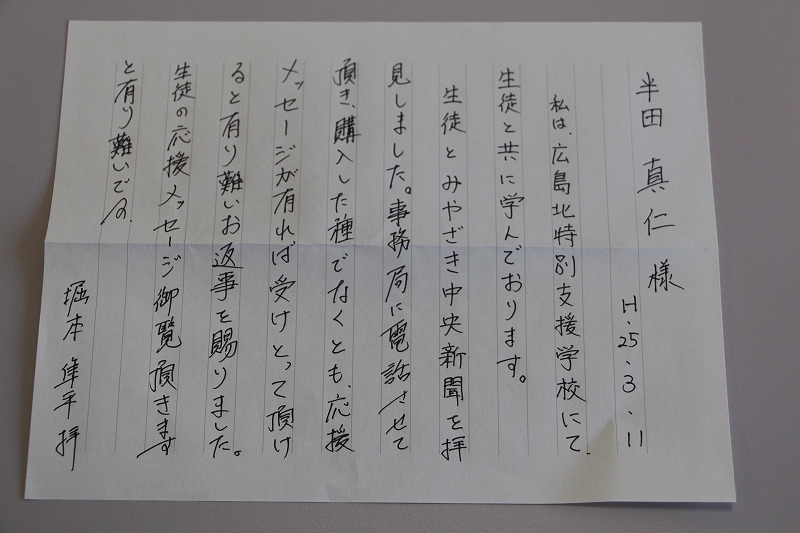 半田 真仁 様
H.25.3.11
私は、広島北特別支援学校にて、
生徒と共に学んでおります。
生徒とみやざき中央新聞を拝
見しました。事務局に電話させて
頂き、購入した種でなくとも、応援
メッセージが有れば受けとって頂け
ると有り難いお返事を賜りました。
生徒の応援メッセージ御覧頂きます
と有り難いです。
堀本 隼平 拝